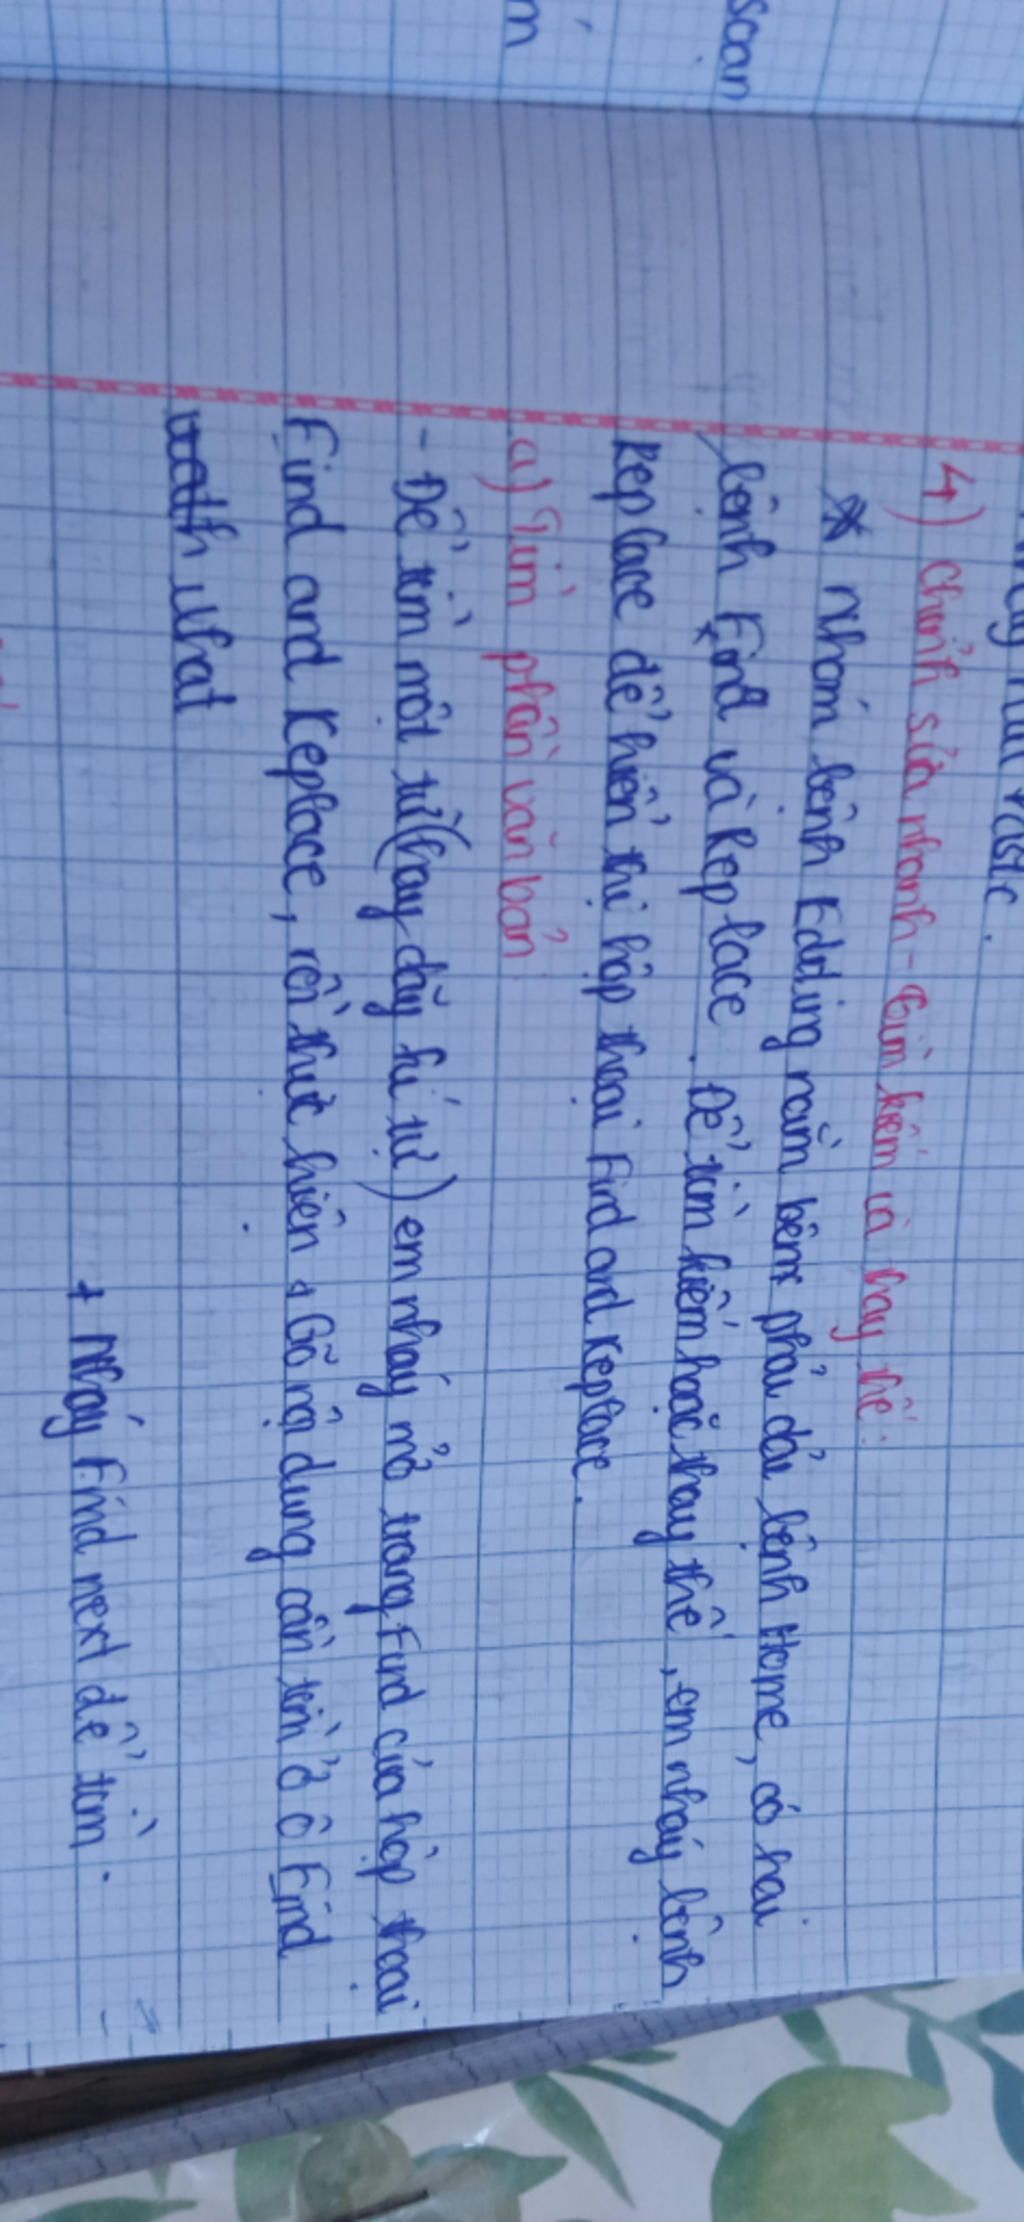 soạn
m
Paste.
4) Chỉnh sửa nhanh - Tìm kiếm và thay thế:
* Nhóm lệnh Editing nằm bên phải dải lệnh Home, có hai
lệnh Find và Replace. Để tìm kiếm hoặc thay thế, em nháy lệnh
Replace để hiển thị hộp thoại Find and Replace.
a) Tìm phần văn bản
- Để tìm một từ (hay dãy kí tự) em nháy mở trang Find của hộp thoại
Find and Replace, rồi thực hiện + Gõ nội dung cần tìm ở ô Find
what
+ Nháy Find next để tìm.